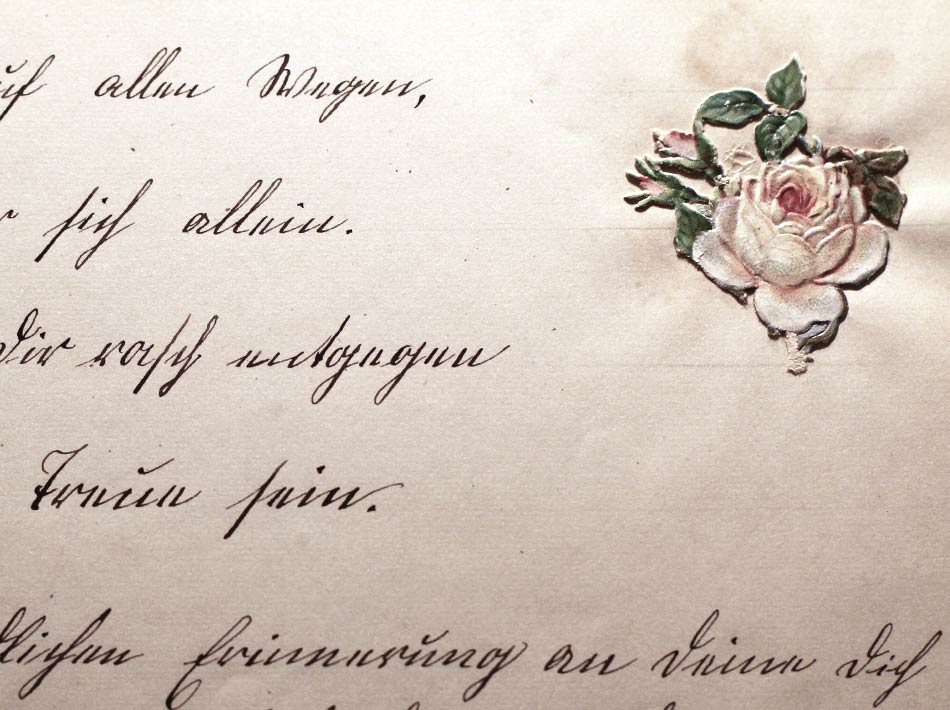 uf allen Wegen,
r sich allein.
Dir rasch entgegen
Treue sein.
dlichen Erinnerung an Deine Dich